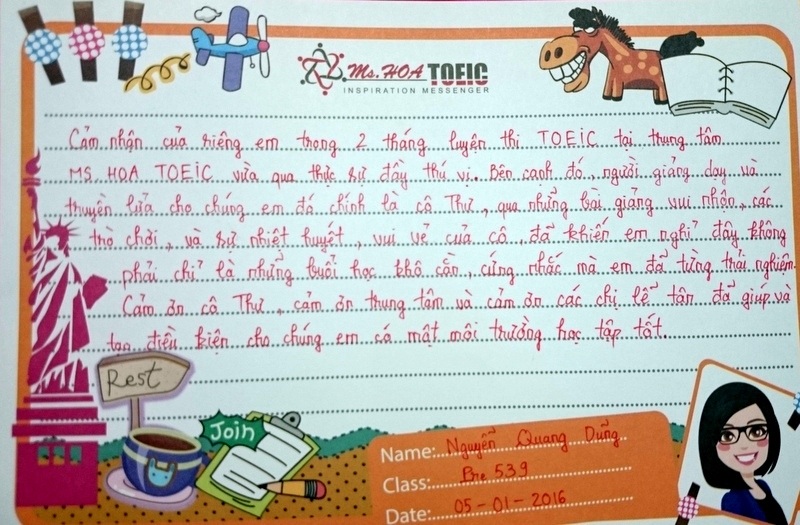 Ms. HOA TOEIC
INSPIRATION MESSENGER
Cảm nhận của riêng em trong 2 tháng luyện thi TOEiC tại trung tâm
MS HOA TOEiC vừa qua thực sự đầy thú vị. Bên cạnh đó, người giảng dạy và
truyền lửa cho chúng em đó chính là cô Thư, qua những bài giảng vui nhộn, các
trò chơi, và sự nhiệt huyết, vui vẻ của cô, đã khiến em nghĩ đây không
phải chỉ là những buổi học khô cằn, cứng nhắc mà em đã từng trải nghiệm.
Cảm ơn cô Thư, cảm ơn trung tâm và cảm ơn các chị lễ tân đã giúp và
tạo điều kiện cho chúng em có một môi trường học tập tốt.
Rest
Join
Name: Nguyễn Quang Dũng
Class: Pre 539
Date: 05-01-2016